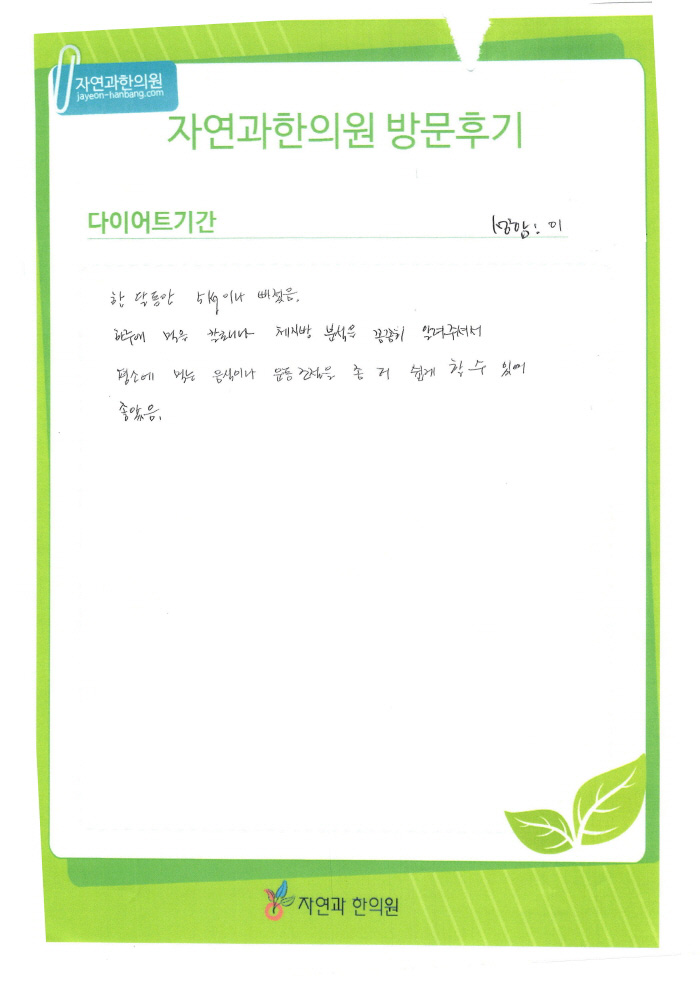 자연과한의원
jayeon-hanbang.com
자연과한의원 방문후기
다이어트기간
성함: 이
한 달동안 5kg이나 빠졌음.
하루에 먹은 칼로리나 체지방 분석을 꼼꼼히 알려주셔서
평소에 먹는 음식이나 운동 조절을 좀 더 쉽게 할 수 있어
좋았음.
자연과 한의원